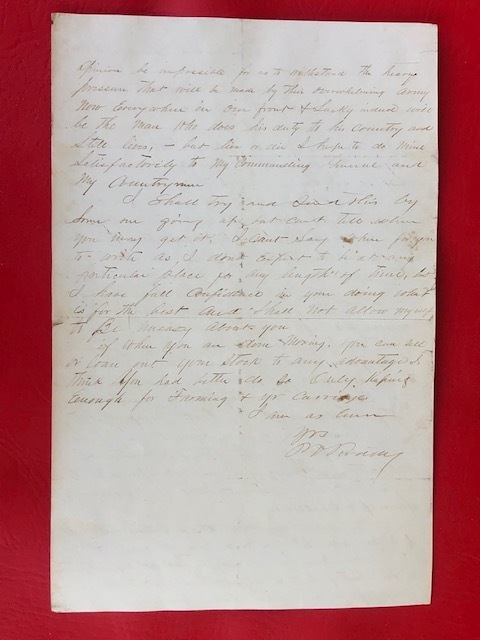 opinion be impossible for us to withstand the heavy
pressure that will be made by this overwhelming army
now everywhere in our front & lucky indeed will
be the man who does his duty to his country and
still lives, – but live or die I hope to do mine
satisfactorily to my Commanding and
my Countrymen
I shall try and send this by
some one going up, but can't tell when
you may get it. I cant say where for you
to write as I dont expect to be at any
particular place for any length of time, but
I have full confidence in your doing what
is for the best and shall not allow myself
to be uneasy about you
if when you are done moving, you can sell
or loan out your stock to any advantage I
think you had better do so only keeping
enough for Farming & yr carriage
I am as ever
Yrs